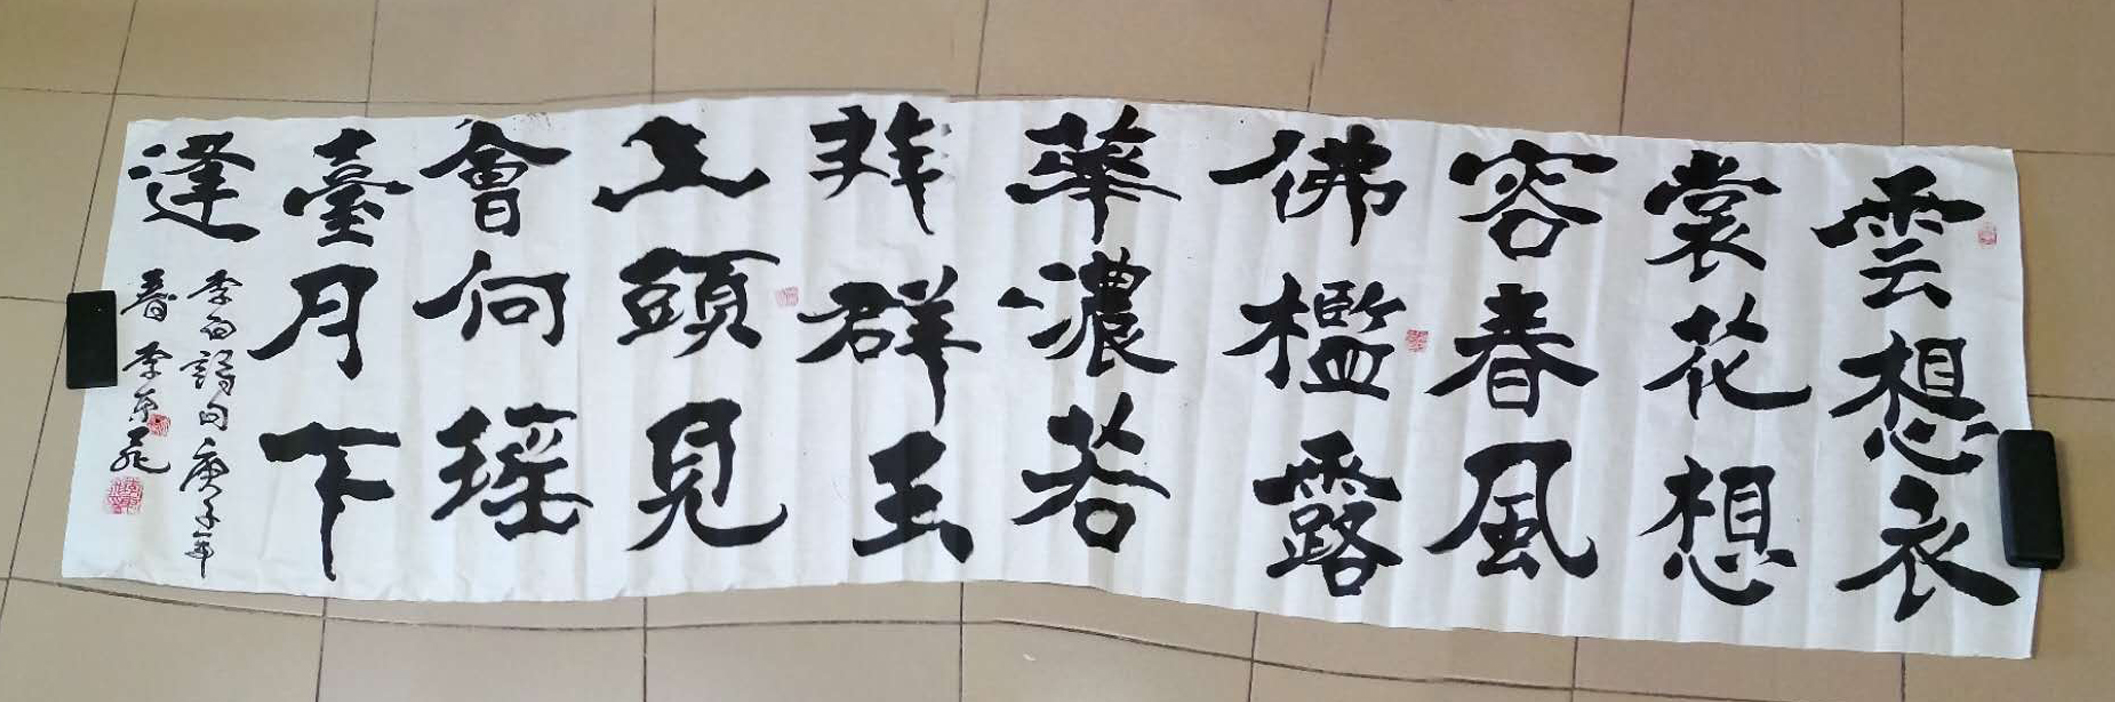 雲想衣
裳花想
容春風
佛檻露
華濃若
非群玉
山頭見
會向瑶
臺月下
逢
李白詩句庚子年
春李東